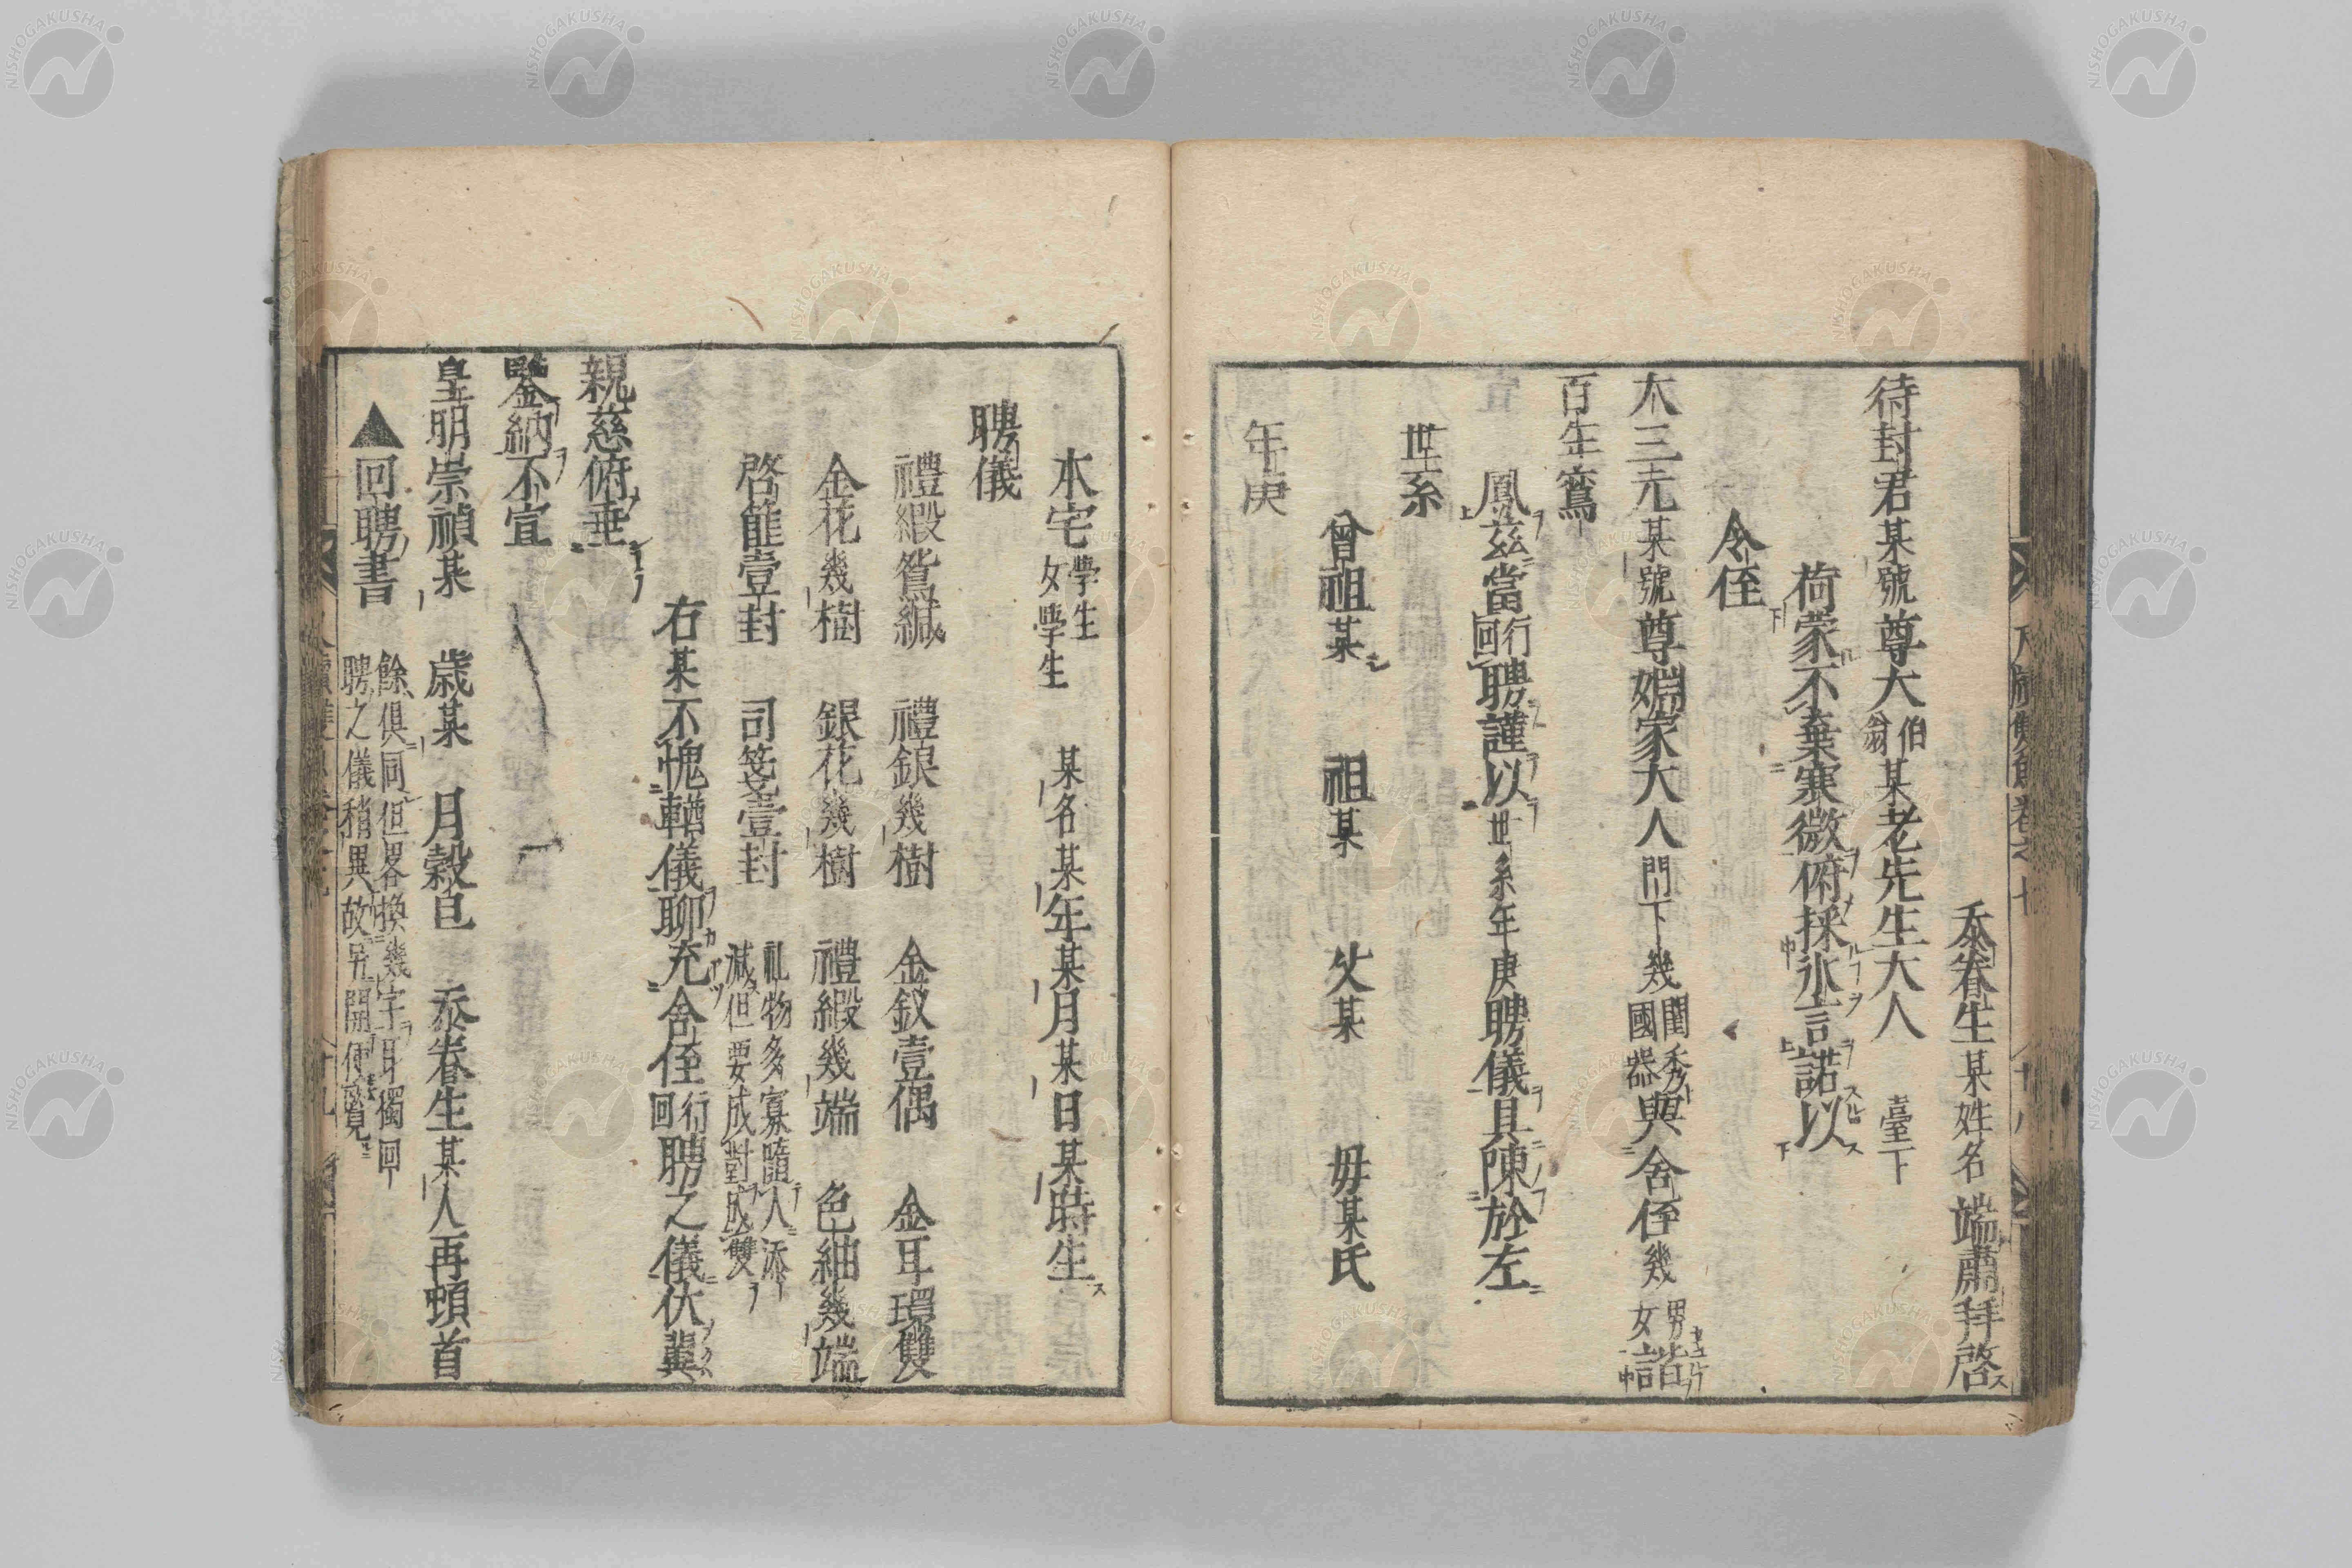 忝眷生某姓名 端肅拜啓
待封君某號尊大伯翁某老先生大人 臺下
荷蒙不棄寒微俯採氷言諾以
令侄
大三元某號尊姻家大人門下幾閨秀國器與舍侄幾男女諧
百年鸞
鳳茲當行回聘謹以世系年庚聘儀具陳於左
世系
曾祖某 祖某 父某 毋某氏
年庚
本宅學生女學生 某名某年某月某日某時生
聘儀
禮緞鴛緘 禮銀幾樹 金釵壹偶 金耳環雙
金花幾樹 銀花幾樹 禮緞幾端 色紬幾端
啓篚壹封 司箋壹封 礼物多寡隨人添減但要成對成雙
右某不愧輶儀聊充舍侄行回聘之儀伏冀
親慈俯垂
鑒納不宣
皇明崇禎某 歲某 月穀旦 忝眷生某人再頓首
▲回聘書 餘俱同但畧換幾字耳獨回聘之儀稍異故另開便覽